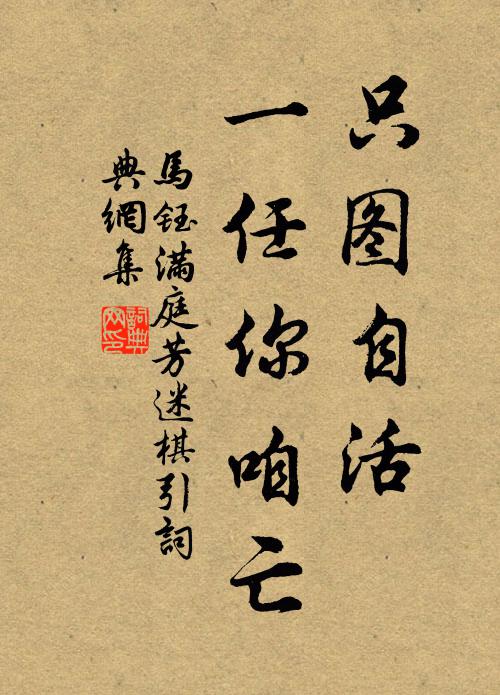 只图自活
一任你咱亡
馬鈺滿庭芳迷棋引詞
典網集
詞典网印